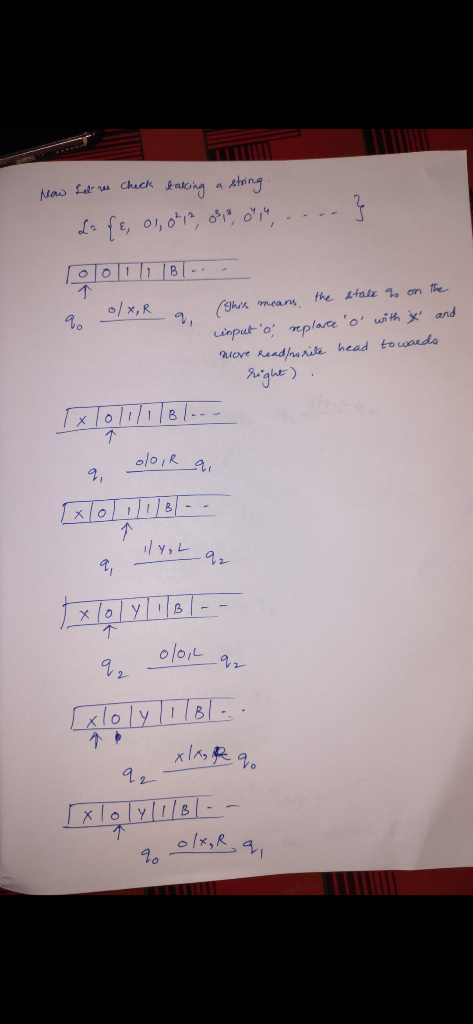 Now Let us check taking a string.
L= { ε, 01, 0²1², 0³1³, 0⁴1⁴, - - - - }
0 | 0 | 1 | 1 | B | - - -
↑
q₀ 0/x,R q₁ (This means, the state q₀ on the
input '0', replace '0' with 'x' and
move read/write head towards
right).
x | 0 | 1 | 1 | B | - - -
↑
q₁ 0/0,R q₁
x | 0 | 1 | 1 | B | - -
↑
q₁ 1/Y,L q₂
x | 0 | Y | 1 | B | - -
↑
q₂ 0/0,L q₂
x | 0 | Y | 1 | B | - - .
↑
q₂ x/x,R q₀
x | 0 | Y | 1 | B | - -
↑
q₀ 0/x,R q₁